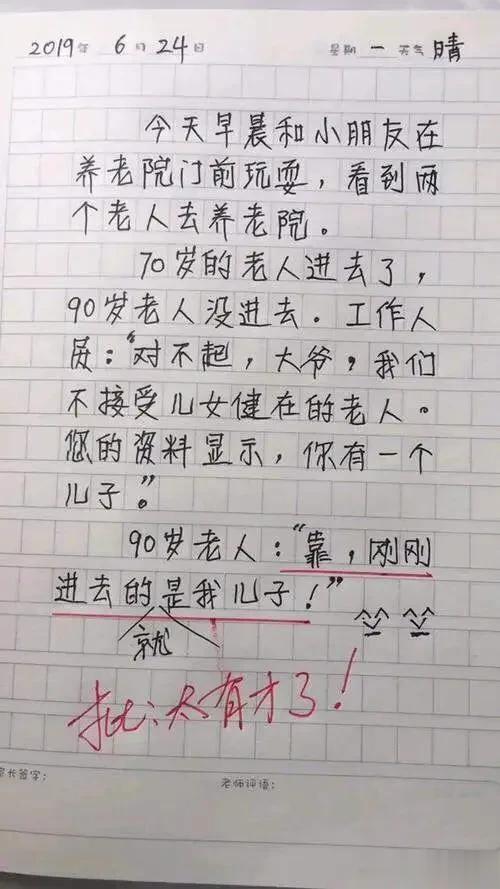 2019年 6月 24日 星期 一 天气 晴
今天早晨和小朋友在
养老院门前玩耍，看到两
个老人去养老院。
70岁的老人进去了，
90岁老人没进去．工作人
员：“对不起，大爷，我们
不接受儿女健在的老人。
您的资料显示，你有一个
儿子。”
90岁老人：“靠，刚刚
进去的是我儿子！”
就
批：太有才了！
家长签字： 老师评语：